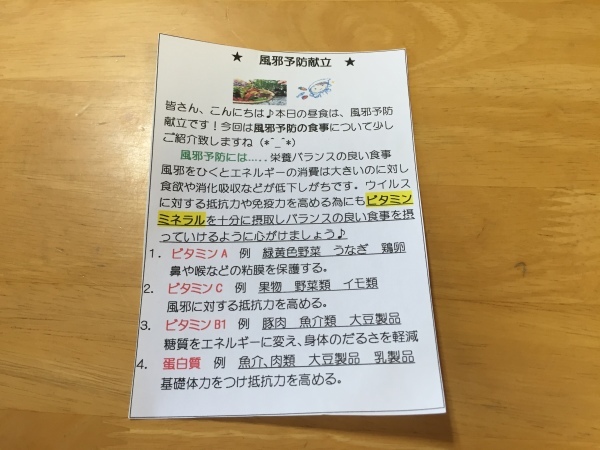 ★ 風邪予防献立 ★
皆さん、こんにちは♪本日の昼食は、風邪予防
献立です！今回は風邪予防の食事について少し
ご紹介致しますね(*^_^*)
風邪予防には….. 栄養バランスの良い食事
風邪をひくとエネルギーの消費は大きいのに対し
食欲や消化吸収などが低下しがちです。ウイルス
に対する抵抗力や免疫力を高める為にもビタミン
ミネラルを十分に摂取しバランスの良い食事を摂
っていけるように心がけましょう♪
1. ビタミンA 例 緑黄色野菜 うなぎ 鶏卵
鼻や喉などの粘膜を保護する。
2. ビタミンC 例 果物 野菜類 イモ類
風邪に対する抵抗力を高める。
3. ビタミンB1 例 豚肉 魚介類 大豆製品
糖質をエネルギーに変え、身体のだるさを軽減
4. 蛋白質 例 魚介、肉類 大豆製品 乳製品
基礎体力をつけ抵抗力を高める。